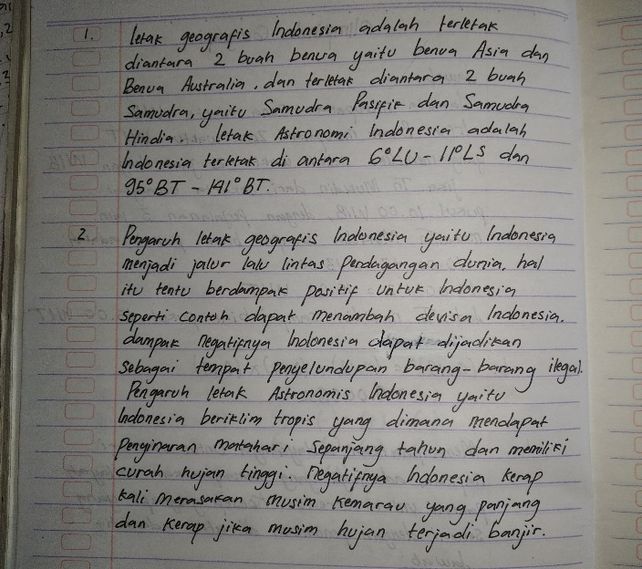 1. letak geografis Indonesia adalah terletak
diantara 2 buah benua yaitu benua Asia dan
Benua Australia, dan terletak diantara 2 buah
Samudra, yaitu Samudra Pasifik dan Samudra
Hindia. letak Astronomi Indonesia adalah
Indonesia terletak di antara 6°LU - 11°LS dan
95°BT - 141°BT.
2. Pengaruh letak geografis Indonesia yaitu Indonesia
menjadi jalur lalu lintas perdagangan dunia, hal
itu tentu berdampak positif untuk Indonesia
seperti contoh dapat menambah devisa Indonesia.
dampak negatifnya Indonesia dapat dijadikan
sebagai tempat penyelundupan barang-barang ilegal.
Pengaruh letak Astronomis Indonesia yaitu
Indonesia beriklim tropis yang dimana mendapat
penyinaran matahari sepanjang tahun dan memiliki
curah hujan tinggi. negatifnya Indonesia kerap
kali merasakan musim kemarau yang panjang
dan kerap jika musim hujan terjadi banjir.